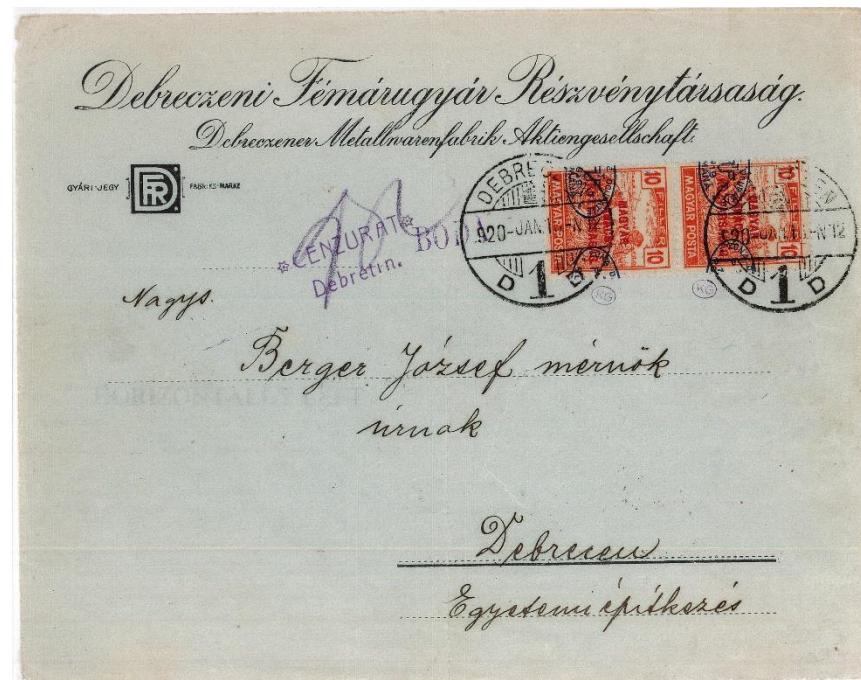 Debreczeni Fémárugyár Részvénytársaság.
Debreczener Metallwarenfabrik Aktiengesellschaft.
GYÁRI-JEGY
FABRIKS-MARKE
CENZURAT
Debretin.
BODA
DEBRE
920-JAN.
D 1
920-JAN. -N12
D 1 D
10 FILLÉR
MAGYAR POSTA
10
10 FILLÉR
MAGYAR POSTA
10
KG
KG
Nagys.
Berger József mérnök
úrnak
Debrecen
Egyetemi építkezés